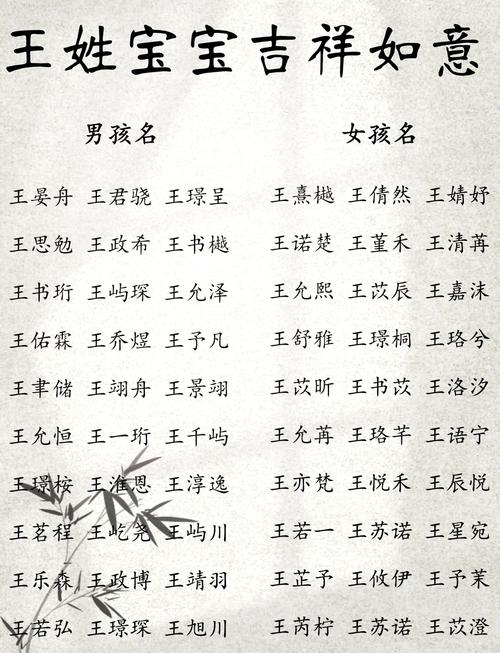 王姓宝宝吉祥如意
男孩名 女孩名
王晏舟 王君骁 王璟呈 王熹樾 王倩然 王婧妤
王思勉 王政希 王书樾 王诺楚 王堇禾 王清苒
王书珩 王屿琛 王允泽 王允熙 王苡辰 王嘉沫
王佑霖 王乔煜 王予凡 王舒雅 王璟桐 王珞兮
王聿储 王翊舟 王景翊 王苡昕 王书苡 王洛汐
王允恒 王一珩 王千屿 王允苒 王珞芊 王语宁
王璟桉 王淮恩 王淳逸 王亦梵 王悦禾 王辰悦
王茗程 王屹尧 王屿川 王若一 王苏诺 王星宛
王乐森 王政博 王靖羽 王芷予 王攸伊 王予茉
王若弘 王璟琛 王旭川 王芮柠 王苏诺 王苡澄